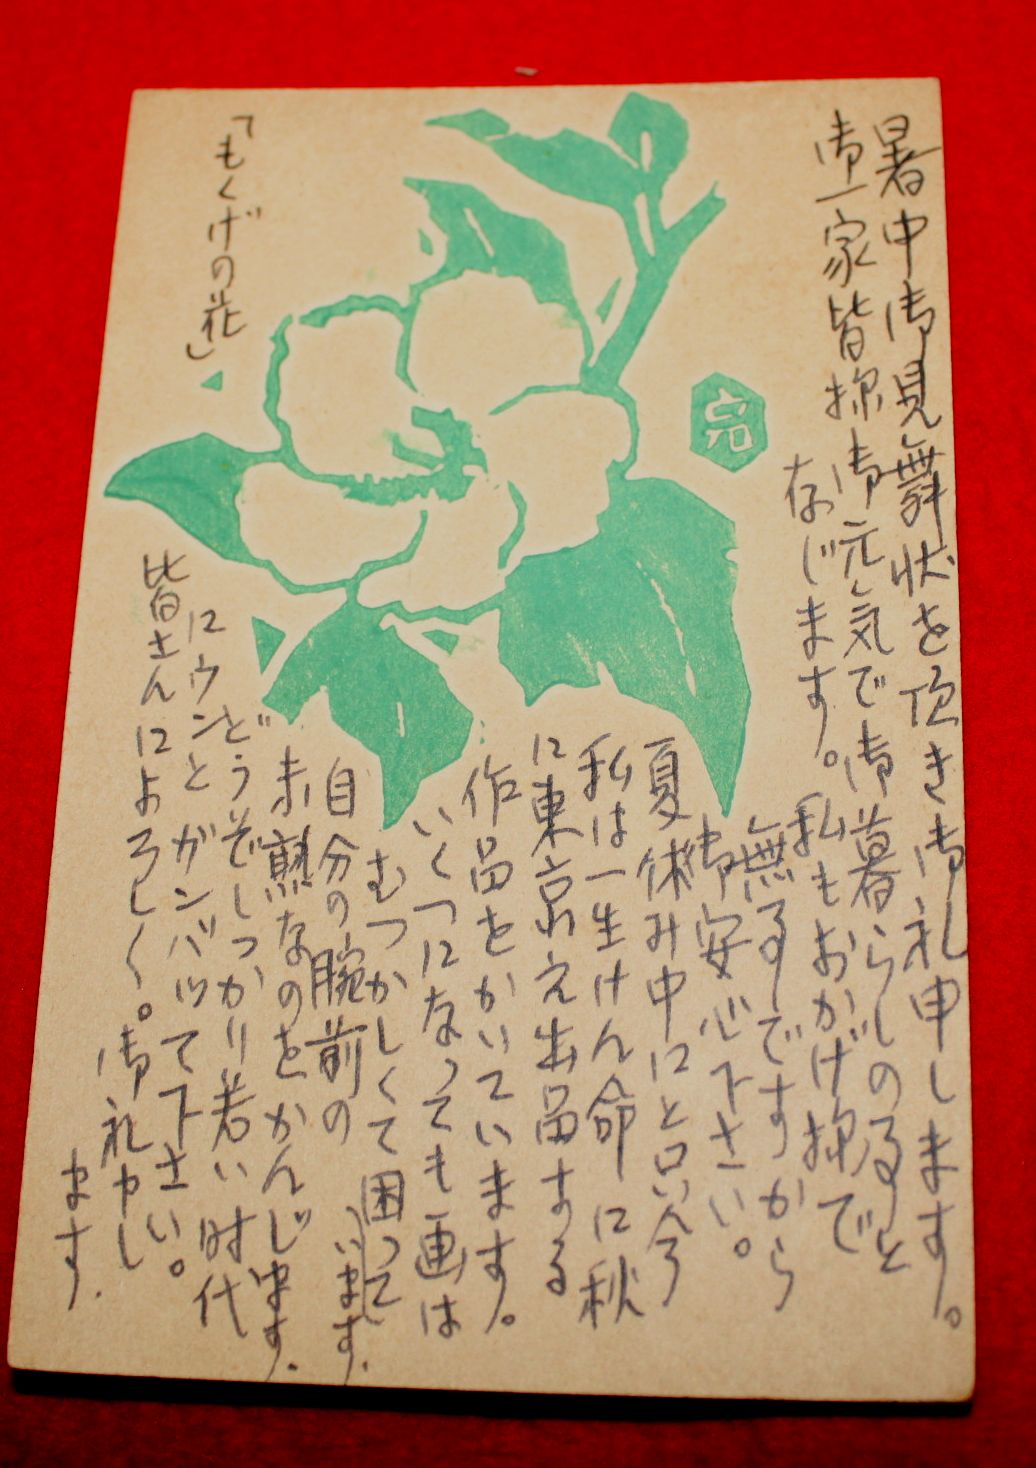 暑中御見舞状を頂き御礼申します。
御一家皆様御元気で御暮らしの事と
存じます。
私もおかげ様で
無事ですから
御安心下さい。
夏休み中にと思い今
私は一生けん命に秋
に東京え出品する
作品をかいています。
いくつになっても画は
むつかしくて困って
います.
自分の腕前の
未熟なのをかんじます.
どうぞしっかり若い时代
にウンとガンバッて下さい。
皆さんによろしく。御礼申し
ます.
「もくげの花」